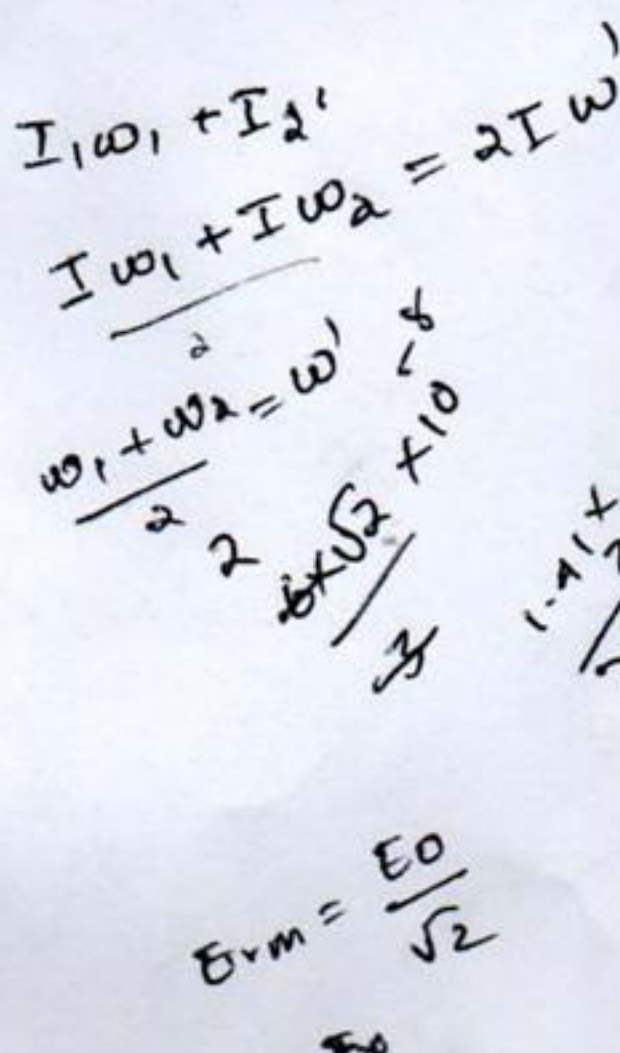 I₁ω₁ + I₂
Iω₁ + Iω₂ = 2Iω'
2
ω₁ + ω₂ = ω'
2
2
6×√2 × 10⁻⁸
3
1.41×
Erm = E0
√2